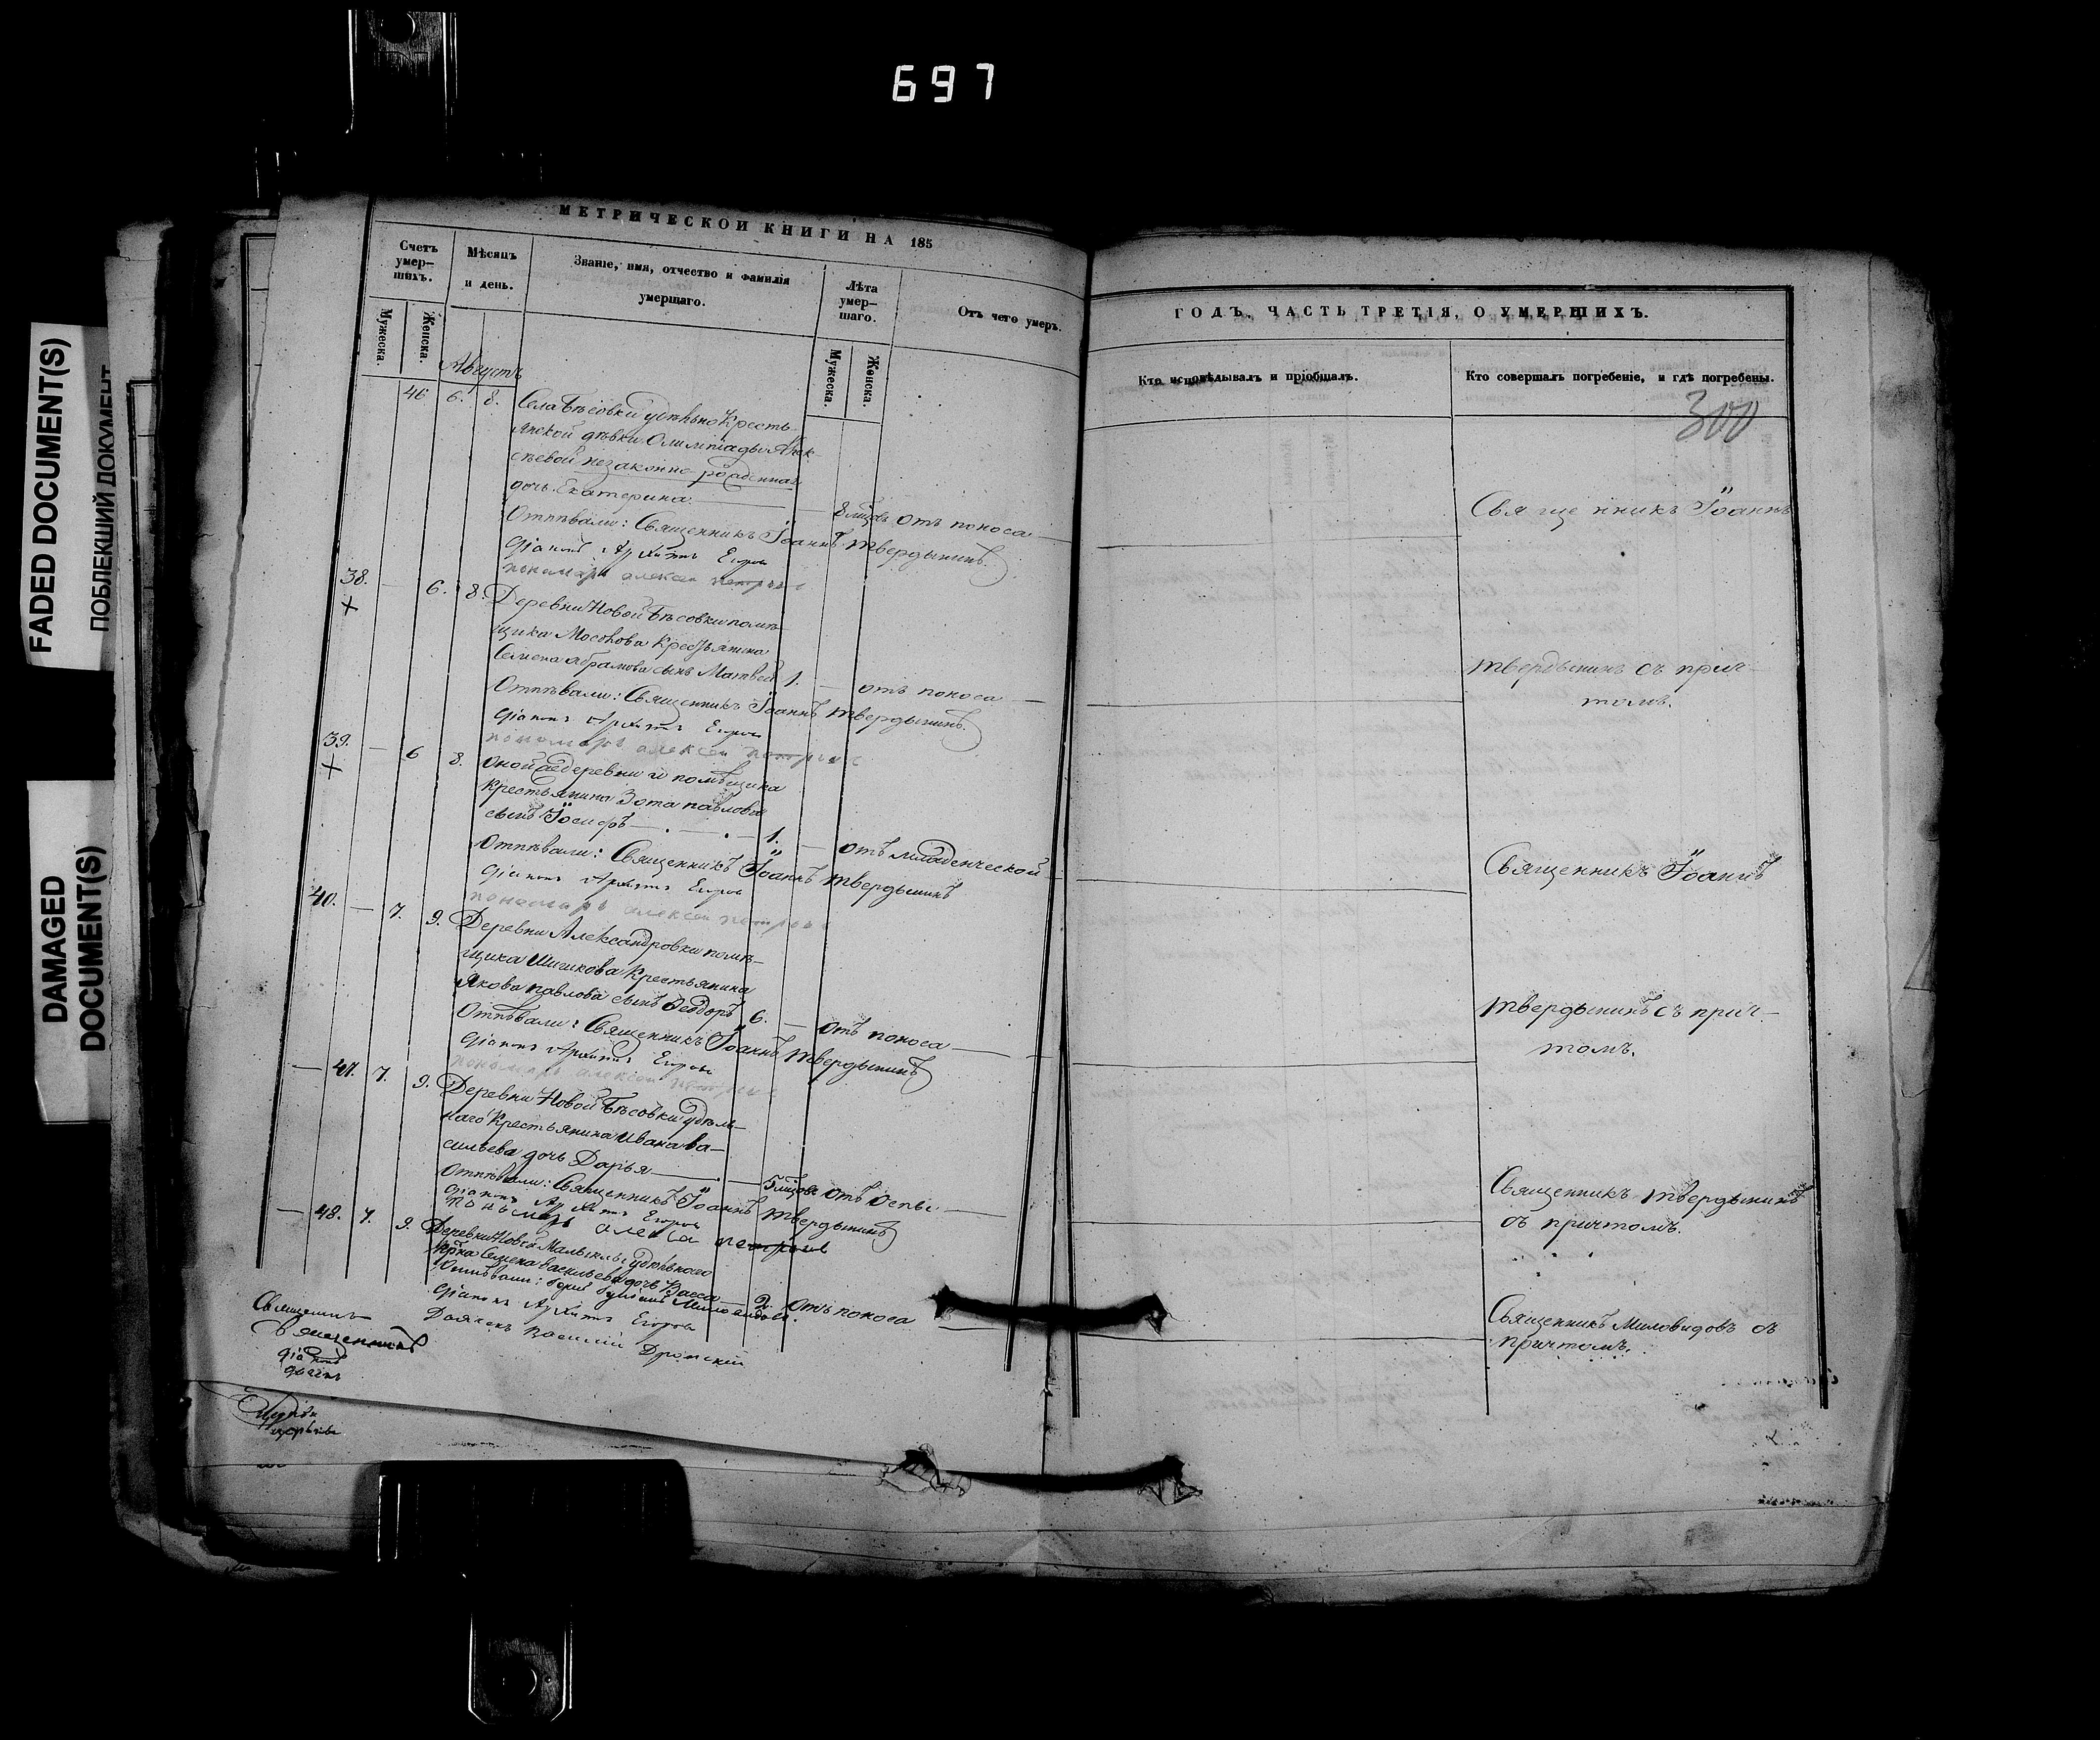 697
FADED DOCUMENT(S)
ПОБЛЕКШИЙ ДОКУМЕНТ
DAMAGED
DOCUMENT(S)
МЕТРИЧЕСКОЙ КНИГИ НА 185
Счетъ
умер-
шихъ.
Мужеска.
Женска.
Мѣсяцъ
и день.
Званіе, имя, отчество и фамилія
умершаго.
Лѣта
умер-
шаго.
Мужеска.
Женска.
Отъ чего умеръ.
Августъ
46 6. 8. Села Бѣсовки удѣльно Кресть-
янской дѣвки Олимпіады Алек-
сѣевой незаконно рожденная
дочь Екатерина 8 мѣцовъ отъ поноса
Отпѣвали: Священникъ Іоаннъ Твердынинъ
Діаконъ Архипъ Егоровъ
пономарь алексей петровъ
38. — 6. 8. Деревни Новой Бѣсовки помѣ-
щика Мосолова Крестьянина
Семена абрамова сынъ Матвей 1. — отъ поноса
Отпѣвали: Священникъ Іоаннъ Твердынинъ
Діаконъ Архипъ Егоровъ
пономарь алексей петровъ
39. — 6 8. Оной же деревни и помѣщика
Крестьянина Зота павлова
сынъ Іосифъ 1. — отъ младенческой
Отпѣвали: Священникъ Іоаннъ Твердынинъ
Діаконъ Архипъ Егоровъ
пономарь алексей петровъ
40. — 7. 9. Деревни Александровки помѣ-
щика Крестьянина
Якова павлова сынъ Ѳеодоръ 6. — отъ поноса
Отпѣвали: Священникъ Іоаннъ Твердынинъ
Діаконъ Архипъ Егоровъ
пономарь алексей петровъ
— 47. 7. 9. Деревни Новой Бѣсовки удѣль-
наго Крестьянина Ивана Ва-
сильева дочь Дарья — 5 мѣцовъ отъ Оспы
Отпѣвали: Священникъ Іоаннъ Твердынинъ
Діаконъ Архипъ Егоровъ
Пономарь алексей петровъ
— 48. 7. 9. Деревни Новой Малыклы удѣльнаго
Крна Семена васильева дочь Васса — 2. отъ поноса
Отпѣвали: Миловидовъ.
Діаконъ Архипъ Егоровъ
Дьячекъ василий
Священникъ
Священникъ
Діаконъ
ГОДЪ, ЧАСТЬ ТРЕТІЯ, О УМЕРШИХЪ.
Кто исповѣдывалъ и пріобщалъ.
Кто совершалъ погребеніе, и гдѣ погребены.
300
Священникъ Іоаннъ
Твердынинъ съ прич-
томъ.
Священникъ Іоаннъ
Твердынинъ съ прич-
томъ.
Священникъ Твердынинъ
съ причтомъ.
Священникъ Миловидовъ съ
причтомъ.